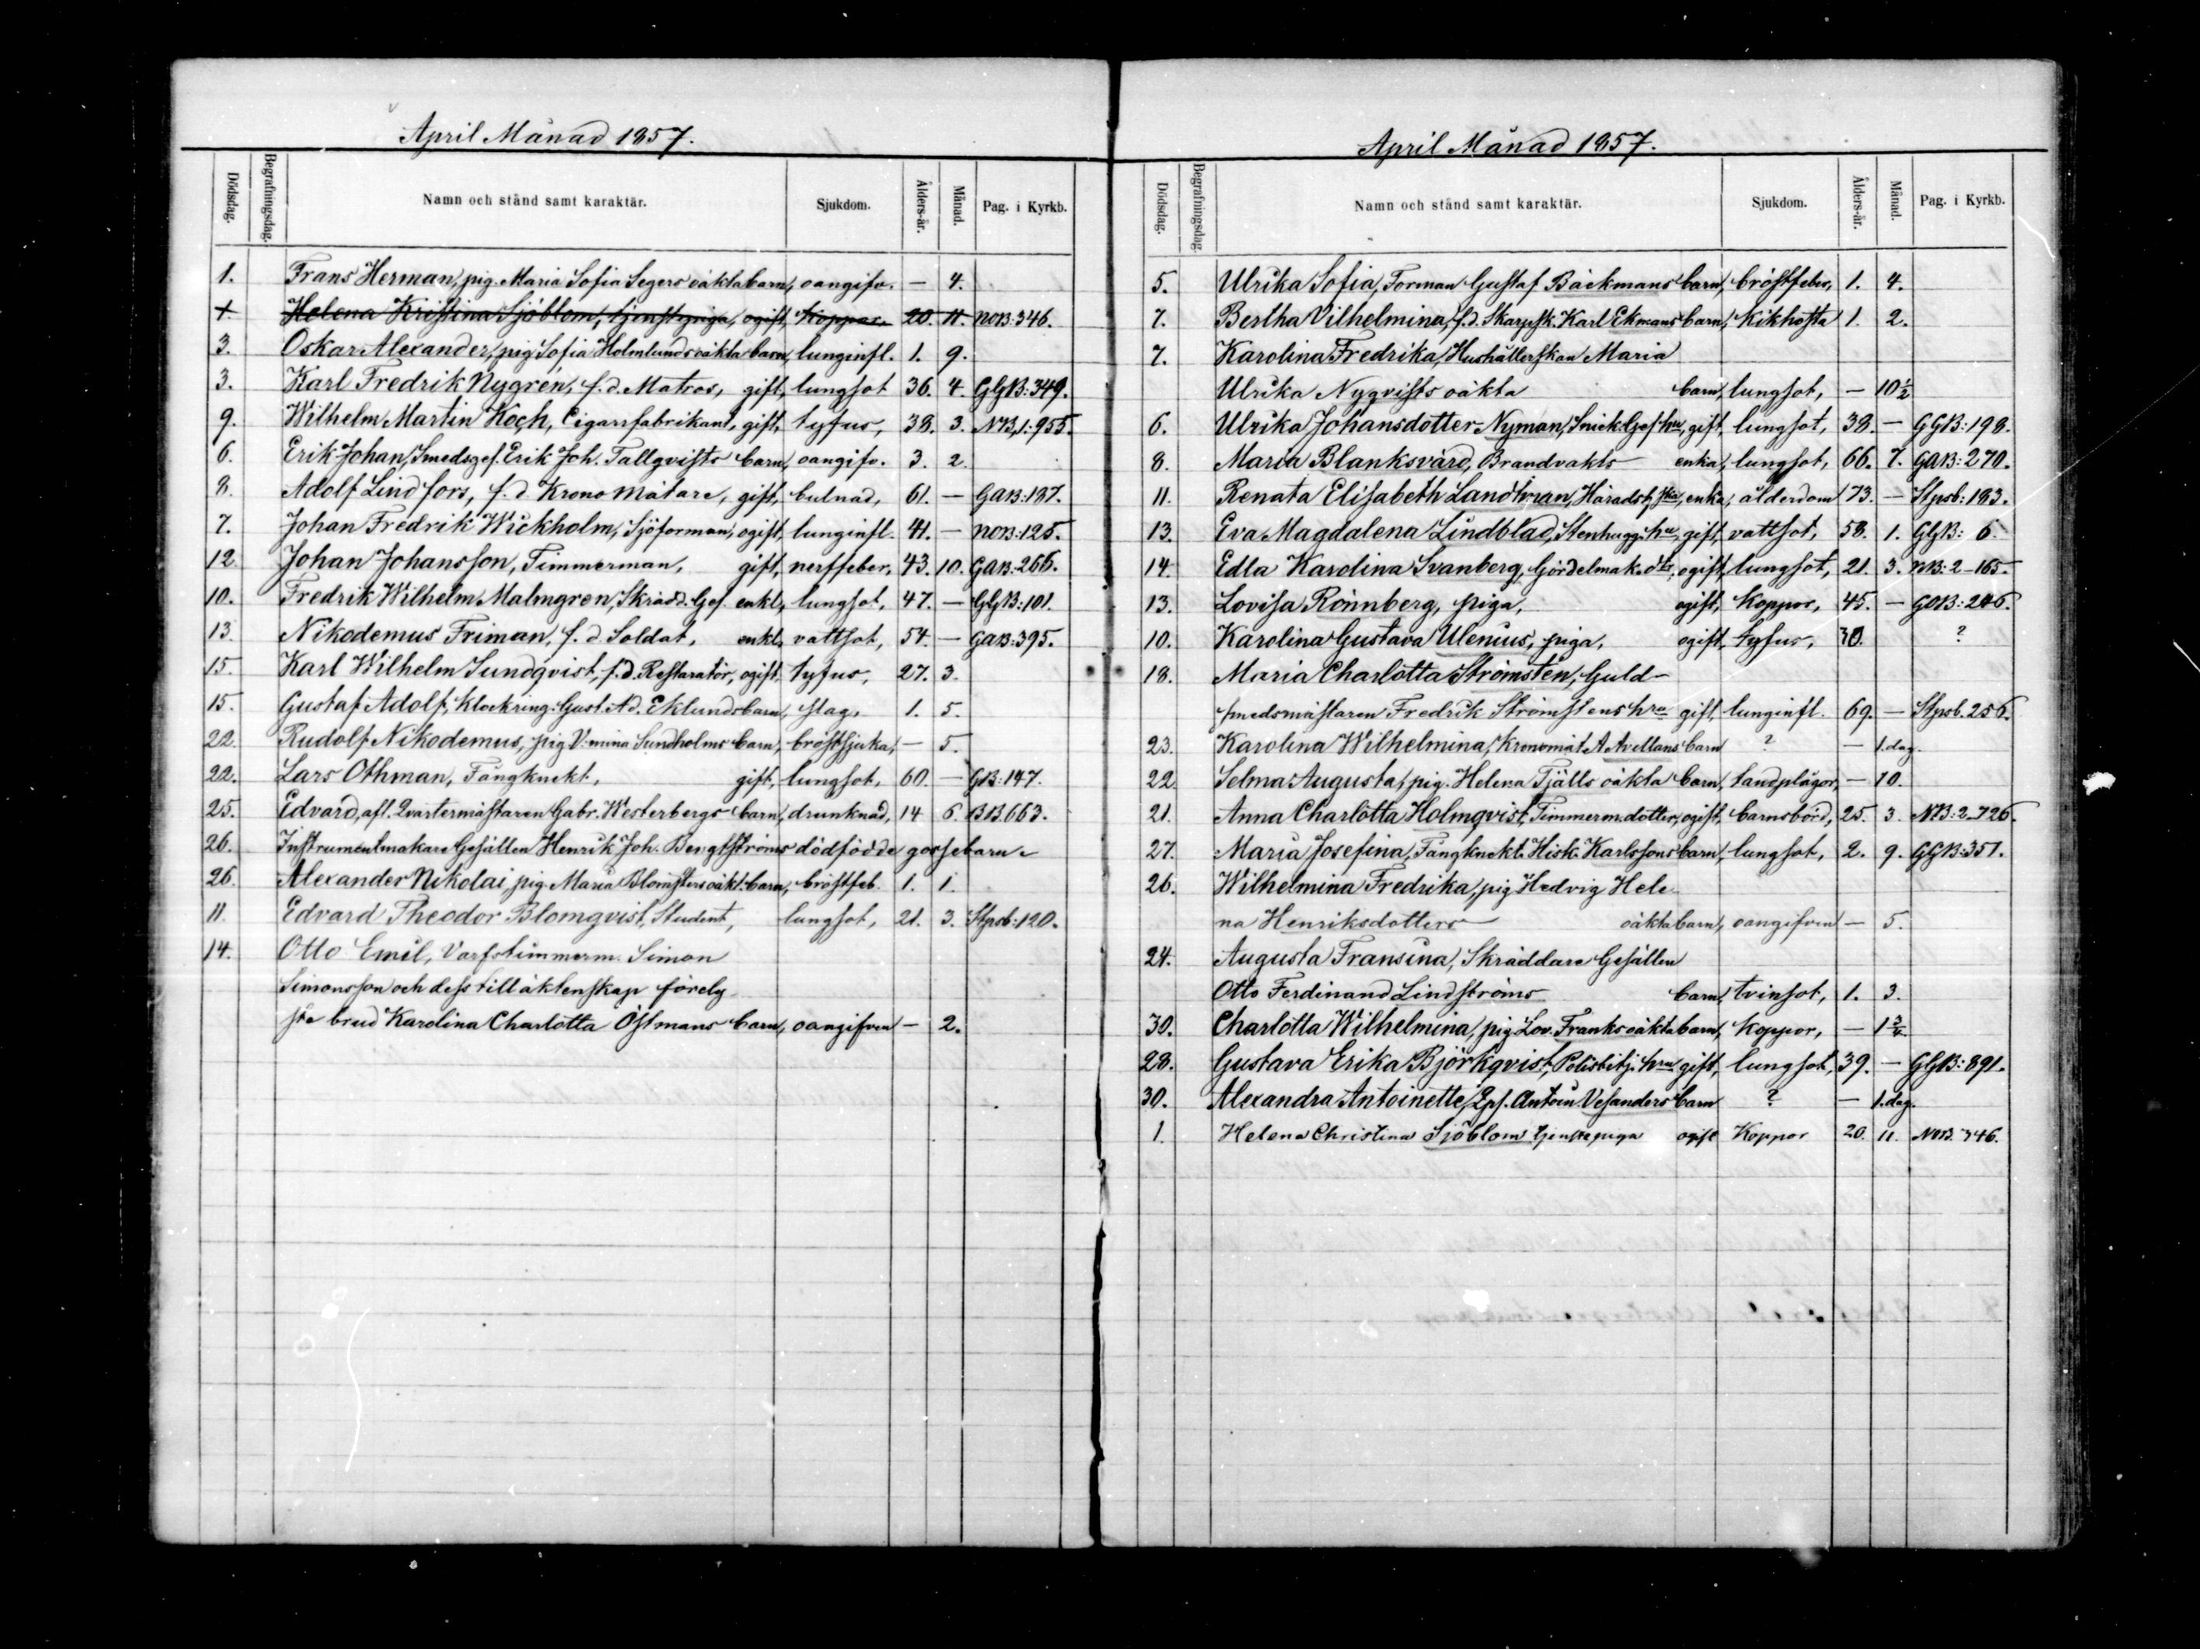 April Månad 1857.
Dödsdag. Begrafningsdag. Namn och stånd samt karaktär. Sjukdom. Ålders-år. Månad. Pag. i Kyrkb.
1. Frans Herman, pig. Maria Sofia Segers oäkta barn, oangifv. — 4.
1. Helena Kristina Sjöblom, tjenstpiga, ogift, Koppor. 20. 11. NOB: 346.
3. Oskar Alexander, pig Sofia Holmlunds oäkta barn, lunginfl. 1. 9.
3. Karl Fredrik Nygrén, f.d. Matros, gift, lungsot 36. 4. GGB: 349.
9. Wilhelm Martin Koch, Cigarrfabrikant, gift, tyfus, 38. 3. NB,1: 955.
6. Erik Johan, Smedsges. Erik Joh. Tallgvists barn, oangifv. 3. 2.
8. Adolf Lindfors, f. d. Krono Mätare, gift, bulnad, 61. — GAB: 187.
7. Johan Fredrik Wickholm, Sjöforman, ogift, lunginfl. 41. — NOB: 125.
12. Johan Johansson, Timmerman, gift, nerffeber, 43. 10. GAB: 266.
10. Fredrik Wilhelm Malmgren, Skrädd. Ges. enkl., lungsot, 47. — GGB: 101.
13. Nikodemus Friman, f. d. Soldat, enkl, vattsot, 54. — GAB: 395.
15. Karl Wilhelm Sundqvist, f.d. Restaratör, ogift, tyfus, 27. 3.
15. Gustaf Adolf, Klockring. Gust. Ad. Eklunds barn, slag, 1. 5.
22. Rudolf Nikodemus, pig V:mina Sundholms barn, bröstsjuka, — 5.
22. Lars Othman, Fångknekt, gift, lungsot, 60. — GB: 147.
25. Edvard, afl. Qvartermästaren Gabr. Westerbergs barn, drunknad, 14 6. BB. 663.
26. Instrumentmakare Gesällen Henrik Joh. Bengtströms dödfödde gossebarn.
26. Alexander Nikolai, pig. Maria Blomsters oäkt. barn, bröstfeb. 1. 1.
11. Edvard Theodor Blomqvist, Student, lungsot, 21. 3. Stpsb: 120.
14. Otto Emil, Varfstimmerm. Simon
Simonsson och dess till äktenskap förelg
ste brud Karolina Charlotta Östmans barn, oangifven — 2.
April Månad 1857.
Dödsdag. Begrafningsdag. Namn och stånd samt karaktär. Sjukdom. Ålders-år. Månad. Pag. i Kyrkb.
5. Ulrika Sofia, Forman Gustaf Bäckmans barn, bröstfeber, 1. 4.
7. Bertha Vilhelmina, f.d. Skarpsk. Karl Ekmans barn, kikhosta 1. 2.
7. Karolina Fredrika, Hushållerskan Maria
Ulrika Nyqvists oäkta barn, lungsot, — 10 1/2
6. Ulrika Johansdotter-Nyman, Snick. Ges. hu, gift, lungsot, 38. — GGB: 198.
8. Maria Blanksvärd, Brandvakts enka, lungsot, 66. 7. GAB: 270.
11. Renata Elisabeth Landtman, Häradsh.ska, enka, ålderdom 73. — Stpsb: 183.
13. Eva Magdalena Lindblad, Stenhugg. hu, gift, vattsot, 58. 1. GGB: 6.
14. Edla Karolina Svanberg, Gördelmak. dtr, ogift, lungsot, 21. 3. NB: 2-165.
13. Lovisa Rönnberg, piga, ogift, koppor, 45. — GOB: 246.
10. Karolina Gustava Ulenius, piga, ogift, tyfus, 30. ?
18. Maria Charlotta Strömstén, Guld-
smedsmästaren Fredrik Strömstens hru gift, lunginfl. 69. — Stpsb. 256.
23. Karolina Wilhelmina, Kronomät. A Avellans barn ? — 1. dag.
22. Selma Augusta, pig. Helena Fjälls oäkta barn, tandplågor, — 10.
21. Anna Charlotta Holmqvist, Timmerm. dotter, ogift, barnsbörd, 25. 3. NB: 2-726.
27. Maria Josefina, Fångknekt. Hisk. Karlssons barn, lungsot, 2. 9. GGB: 351.
26. Wilhelmina Fredrika, pig Hedvig Hele-
na Henriksdotters oäkta barn, oangifven — 5.
24. Augusta Fransina, Skräddare Gesällen
Otto Ferdinand Lindströms barn, tvinsot, 1. 3.
30. Charlotta Wilhelmina, pig Lov. Franks oäkta barn, koppor, — 1 3/4
28. Gustava Erika Björkqvist, Polisbetj. hru gift, lungsot, 39. — GGB: 891.
30. Alexandra Antoinette, Antoin Vesanders barn ? — 1. dag.
1. Helena Christina Sjöblom tjenstepiga ogift Koppor 20. 11. NOB. 346.